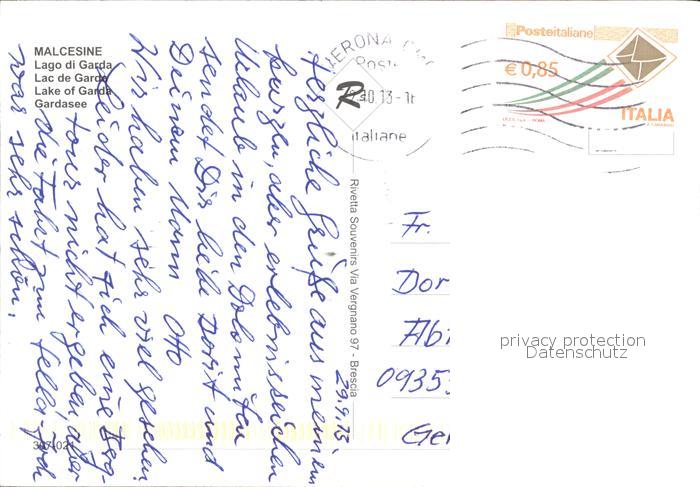 MALCESINE
Lago di Garda
Lac de Garde
Lake of Garda
Gardasee
29.9.13
Herzliche Grüße aus meinem
kurzen, aber erlebnisreichen
Urlaub in den Dolomiten
sendet Dir liebe Dorit und
Deinem Mann Otto
Wir haben sehr viel gesehen.
Leider hat sich eine Berg-
tour nicht ergeben, aber
die Fahrt zum
war sehr schön.
Rivetta Souvenirs Via Vergnano 97 - Brescia
Posteitaliane
€ 0,85
ITALIA
VERONA
Poste
.10.13-1
italiane
Fr.
Dor
Abi
0935
Ger
privacy protection
Datenschutz